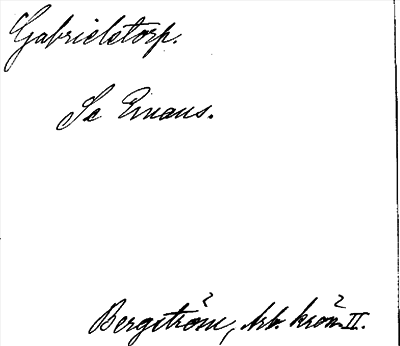 Gabrielstorp.
Se Emaus.
Bergström, Arb. krön. II.